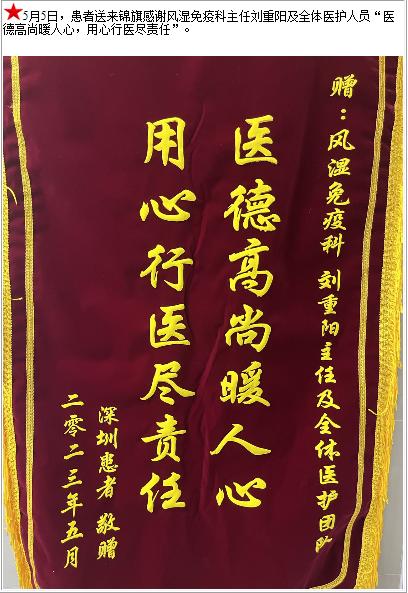 ★5月5日，患者送来锦旗感谢风湿免疫科主任刘重阳及全体医护人员“医
德高尚暖人心，用心行医尽责任”。
赠：风湿免疫科 刘重阳主任及全体医护团队
医德高尚暖人心
用心行医尽责任
深圳患者 敬赠
二零二三年五月